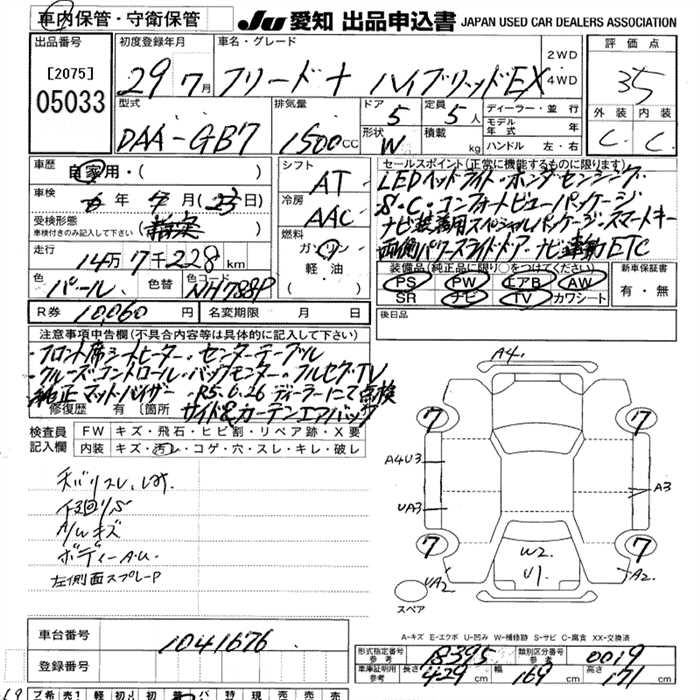 車内保管・守衛保管
JU 愛知 出品申込書 JAPAN USED CAR DEALERS ASSOCIATION
出品番号 初度登録年月 車名・グレード 評価点
[2075] 05033 29 7月 フリード+ ハイブリッドEX 2WD 4WD 3.5
型式 排気量 ドア 定員 ディーラー・並行 外装 内装
DAA-GB7 1500cc 5 5人 モデル年式 C C
形状 W 積載 kg ハンドル 左・右
車歴 自家用・( ) シフト AT
セールスポイント(正常に機能するものに限ります)
LEDヘッドライト・ホンダセンシング・
S・C・コンフォートビューパッケージ・
ナビ装着用スペシャルパッケージ・スマートキー
両側パワースライドドア・ナビ連動ETC
車検 年 月(23日) 冷房 AAC
受検形態
車検付きのみ記入して下さい( )
燃料 ガソリン 軽油
走行 14万7千228km
装備品(純正品に限り○をつけてください) 新車保証書
PS PW エアB AW 有・無
SR ナビ TV カワシート
色 パール 色替 色コード NH788P
R券 10,060円 名変期限 月 日 後日品
注意事項申告欄(不具合内容等は具体的に記入して下さい)
・フロント席シートヒーター・センターテーブル
・クルーズコントロール・バックモンター・フルセグTV
・純正マットバイザー・R5.6.26ディーラーにて点検
修復歴 有 〔箇所 サイド&カーテンエアバッグ
検査員記入欄 FW キズ・飛石・ヒビ割・リペア跡・X要
内装 キズ・汚レ・コゲ・穴・スレ・キレ・破レ
下廻りS
A/Wキズ
ボディーA.U.
左側面スプレーP
A4
7 7
A4U3
A3
UA3
7 7
W2
UA2 U1 A2
スペア
A-キズ E-エクボ U-凹み W-補修跡 S-サビ C-腐食 XX-交換済
車台番号 1041676
登録番号
形式指定番号 参考 18395 類別区分番号 参考 0019
車庫証明用 参考 長さ 429cm 幅 169cm 高さ 171cm